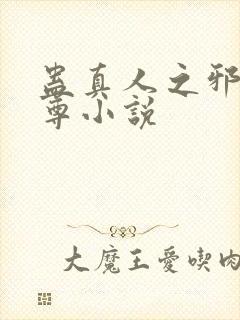 蠱真人之邪
尊小說
大魔王愛喫肉